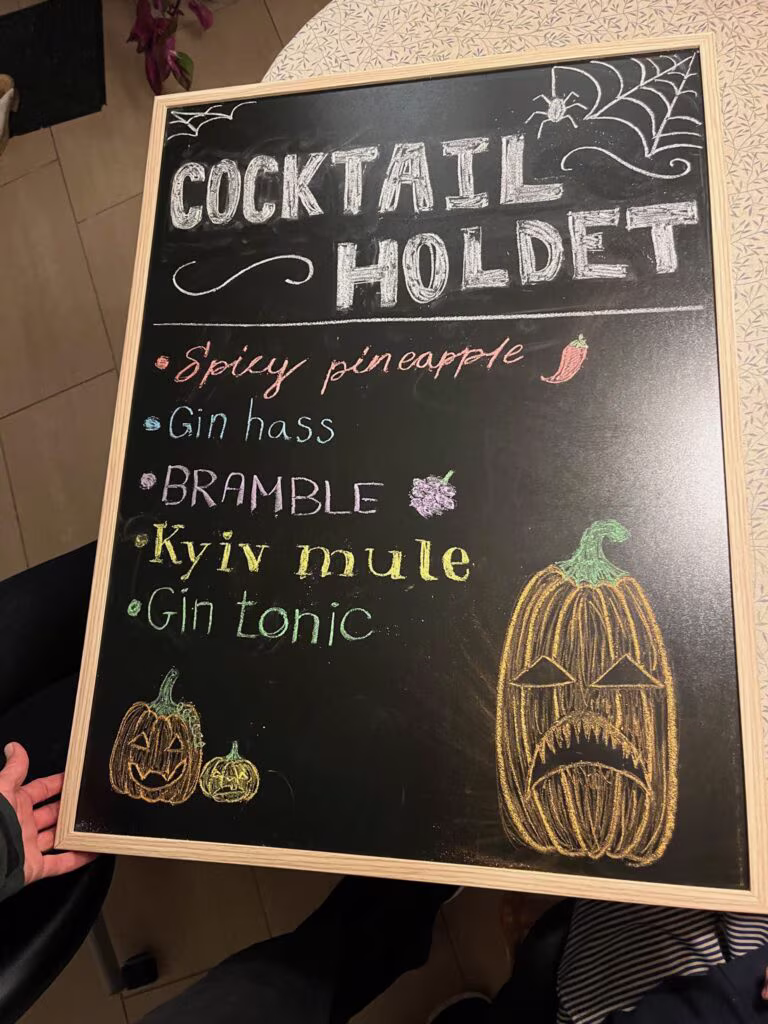 COCKTAIL
HOLDET
• Spicy pineapple
• Gin hass
• BRAMBLE
• Kyiv mule
• Gin tonic